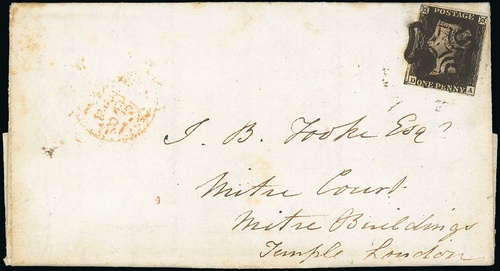 POSTAGE
D ONE PENNY A
J. B. Tooke Esqr
Mitre Court
Mitre Buildings
Temple London